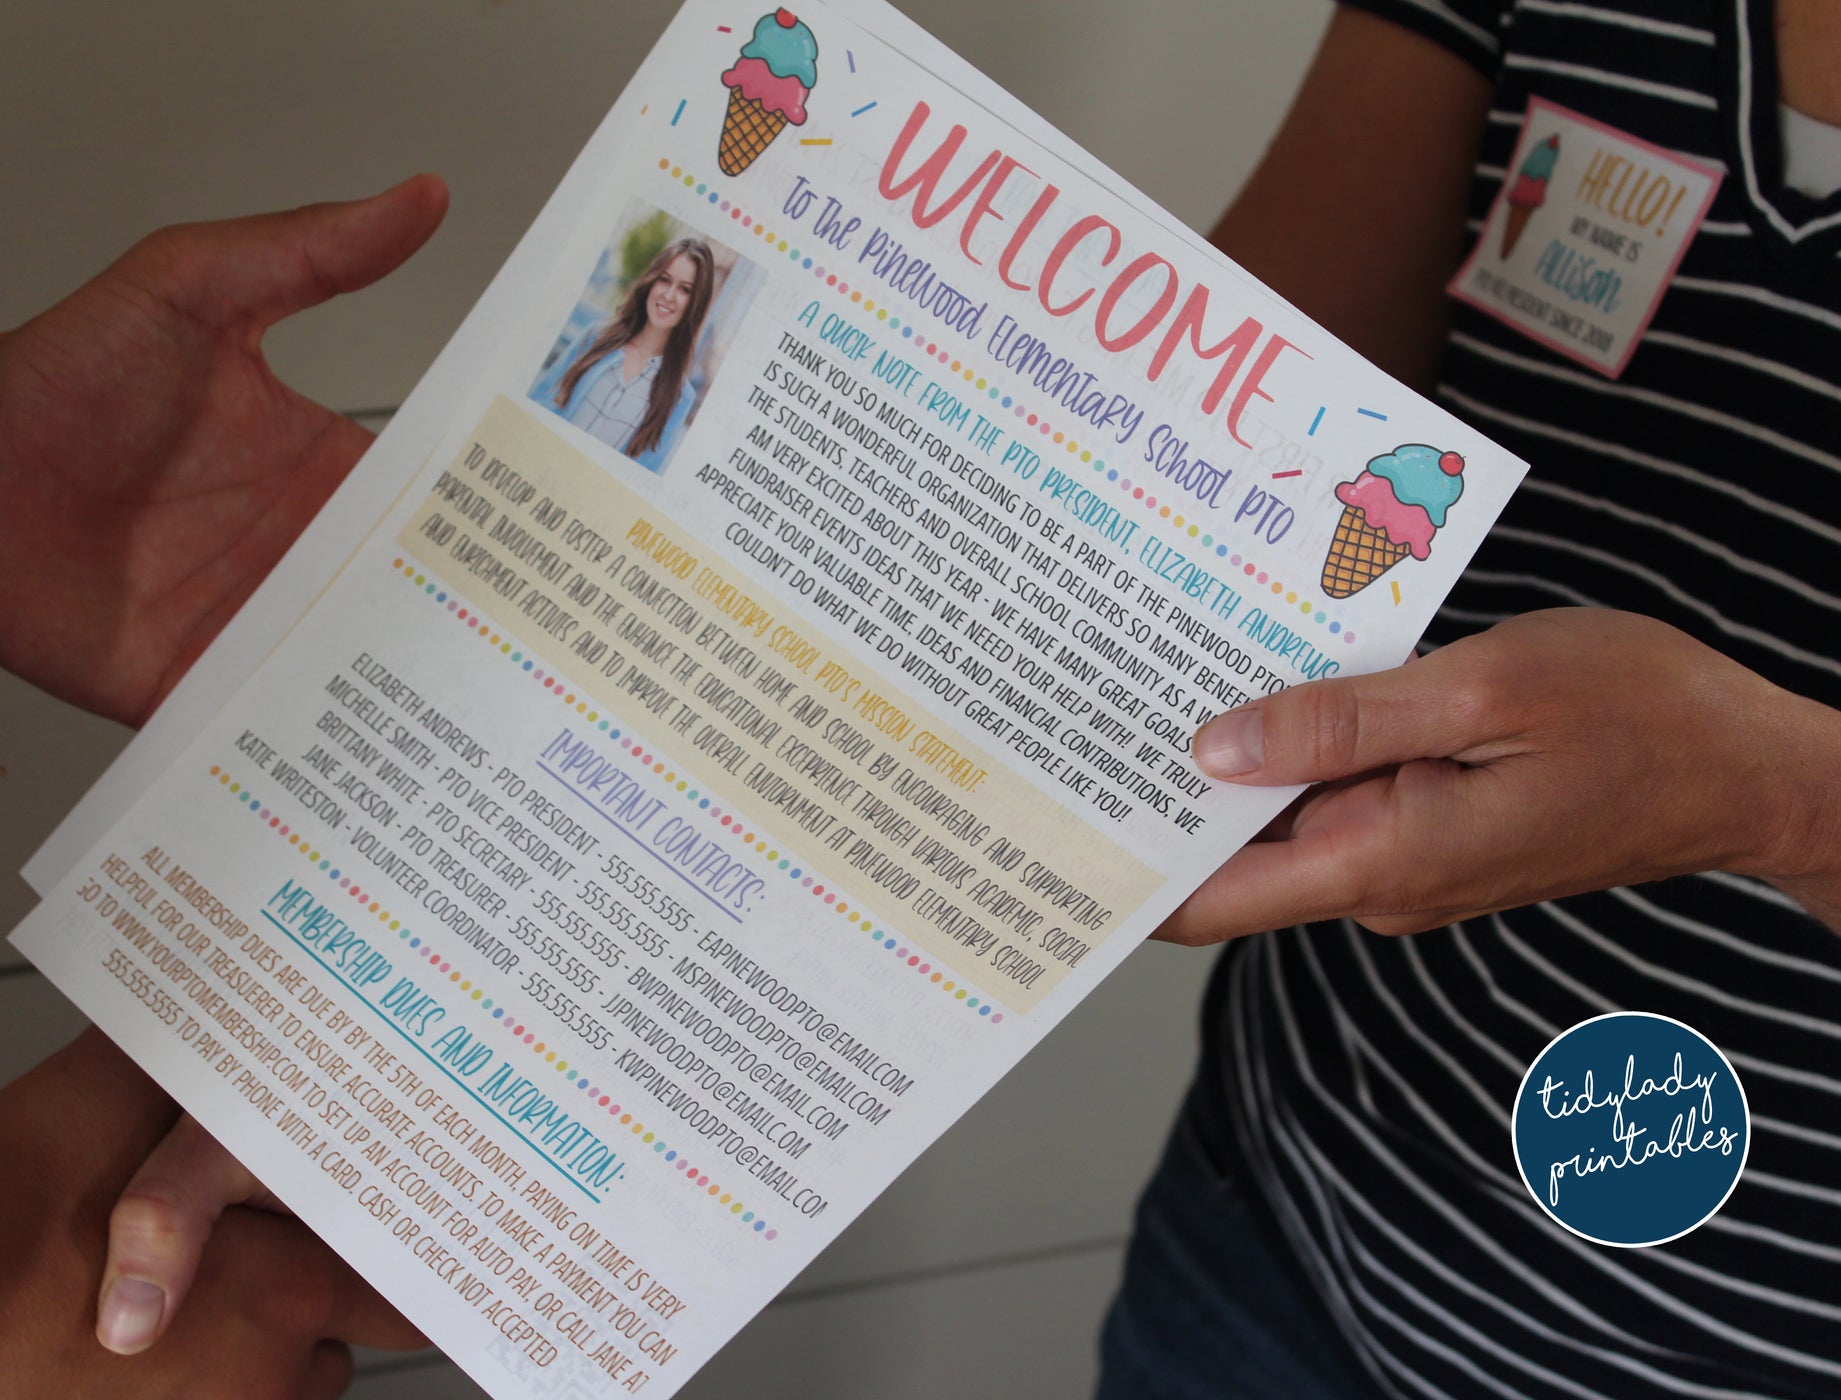 WELCOME
to the Pinewood Elementary School PTO
A QUCIK NOTE FROM THE PTO PRESIDENT, ELIZABETH ANDREWS
THANK YOU SO MUCH FOR DECIDING TO BE A PART OF THE PINEWOOD PTO!
IS SUCH A WONDERFUL ORGANIZATION THAT DELIVERS SO MANY
THE STUDENTS, TEACHERS AND OVERALL SCHOOL COMMUNITY AS A
AM VERY EXCITED ABOUT THIS YEAR - WE HAVE MANY GREAT GOALS
FUNDRAISER EVENTS IDEAS THAT WE NEED YOUR HELP WITH! WE TRULY
APPRECIATE YOUR VALUABLE TIME, IDEAS AND FINANCIAL CONTRIBUTIONS, WE
COULDN'T DO WHAT WE DO WITHOUT GREAT PEOPLE LIKE YOU!
PINEWOOD ELEMENTARY SCHOOL PTO'S MISSION STATEMENT:
TO DEVELOP AND FOSTER A CONNECTION BETWEEN HOME AND SCHOOL BY ENCOURAGING AND SUPPORTING
PARENTAL INVOLVEMENT AND THE ENHANCE THE EDUCATIONAL EXCEPRIENCE THROUGH VARIOUS ACADEMIC, SOCIAL
AND ENRICHMENT ACTIVITIES AND TO IMPROVE THE OVERALL ENVIORNMENT AT PINEWOOD ELEMENTARY SCHOOL
IMPORTANT CONTACTS:
ELIZABETH ANDREWS - PTO PRESIDENT - 555.555.5555 - EAPINEWOODPTO@EMAIL.COM
MICHELLE SMITH - PTO VICE PRESIDENT - 555.555.5555 - MSPINEWOODPTO@EMAIL.COM
BRITTANY WHITE - PTO SECRETARY - 555.555.5555 - BWPINEWOODPTO@EMAIL.COM
JANE JACKSON - PTO TREASURER - 555.555.5555 - JJPINEWOODPTO@EMAIL.COM
KATIE WRITESTON - VOLUNTEER COORDINATOR - 555.555.5555 - KWPINEWOODPTO@EMAIL.COM
MEMBERSHIP DUES AND INFORMATION:
ALL MEMBERSHIP DUES ARE DUE BY BY THE 5TH OF EACH MONTH, PAYING ON TIME IS VERY
HELPFUL FOR OUR TREASUERER TO ENSURE ACCURATE ACCOUNTS, TO MAKE A PAYMENT YOU CAN
GO TO WWW.YOURPTOMEMBERSHIP.COM TO SET UP AN ACCOUNT FOR AUTO PAY, OR CALL JANE AT
555.555.5555 TO PAY BY PHONE WITH A CARD, CASH OR CHECK NOT ACCEPTED
HELLO!
MY NAME IS
Allison
PTO VICE PRESIDENT SINCE 2018
tidylady
printables